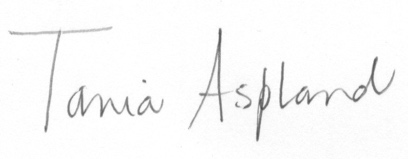 Tania Aspland